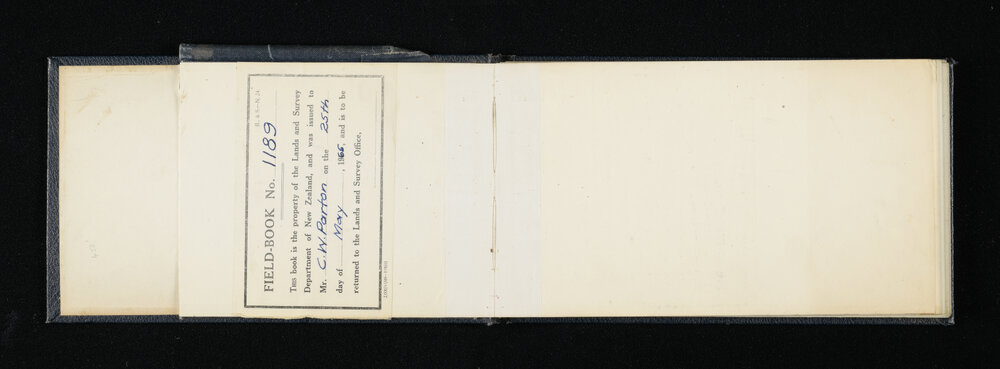 FIELD-BOOK No. 1189
THIS book is the property of the Lands and Survey
Department of New Zealand, and was issued to
Mr. C.W. Parton on the 25th
day of May, 1965, and is to be
returned to the Lands and Survey Office,